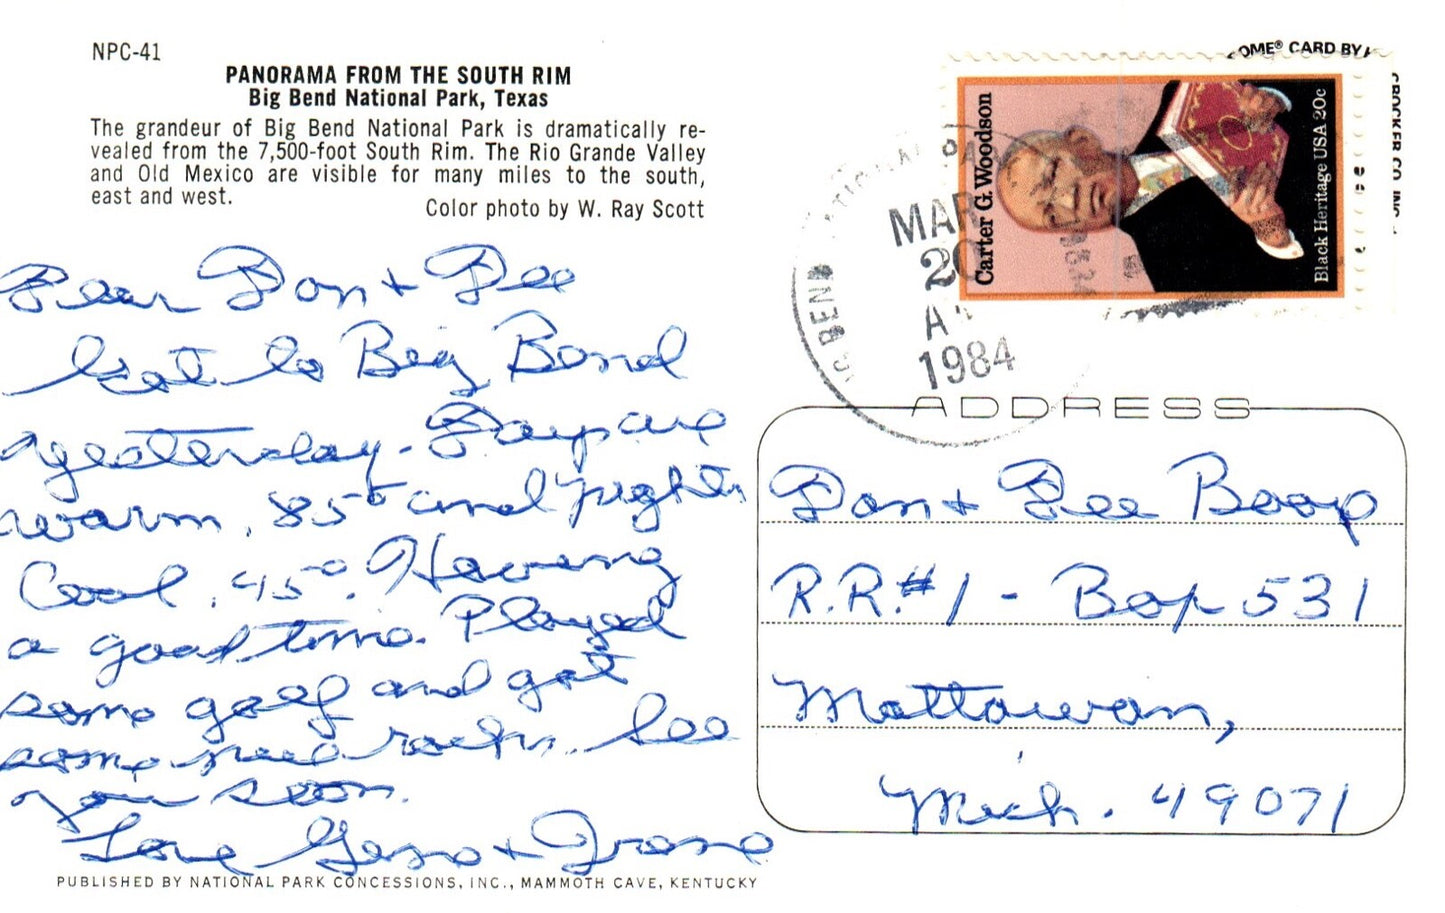 NPC-41
PANORAMA FROM THE SOUTH RIM
Big Bend National Park, Texas
The grandeur of Big Bend National Park is dramatically re-
vealed from the 7,500-foot South Rim. The Rio Grande Valley
and Old Mexico are visible for many miles to the south,
east and west.
Color photo by W. Ray Scott
Dear Don + Dee
Got to Big Bend
yesterday - Days are
warm, 85° and nights
Cool, 45°. Having
a good time. Played
some golf and got
some nice rocks. See
you soon.
Love Geno +
PUBLISHED BY NATIONAL PARK CONCESSIONS, INC., MAMMOTH CAVE, KENTUCKY
OME® CARD BY
CROCKER CO. INC.
Carter G. Woodson
Black Heritage USA 20c
BEND
MAR
20
1984
ADDRESS
Don + Dee Boop
R.R.#1 - Box 531
Mattawan,
Mich. 49071